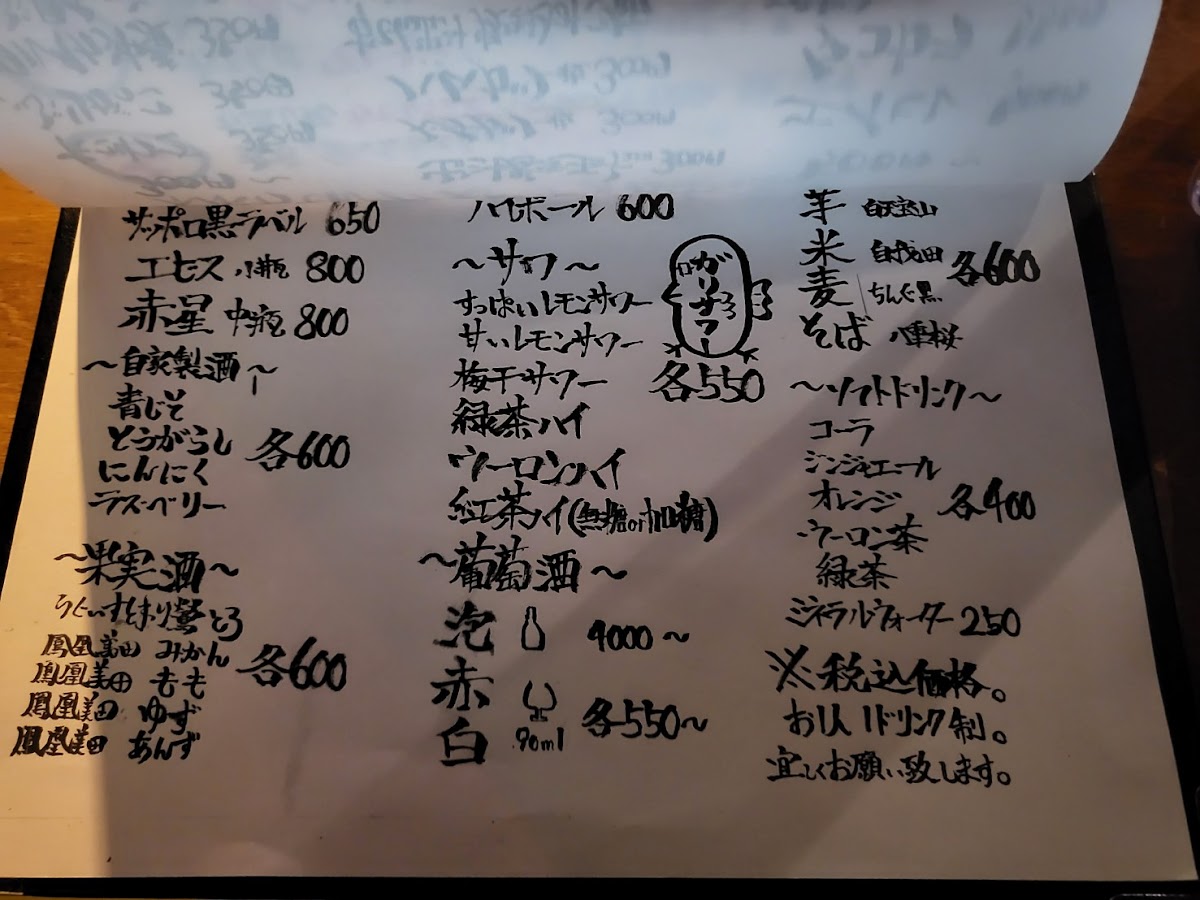 サッポロ黒ラベル 650
エビス 小瓶 800
赤星 中瓶 800
～自家製酒～
青じそ
とうがらし
にんにく
各600
ラズベリー
～果実酒～
うぐいすとまり鶯とろ
鳳凰美田 みかん
鳳凰美田 もも
各600
鳳凰美田 ゆず
鳳凰美田 あんず
ハイボール 600
～サワー～
すっぱいレモンサワー
甘いレモンサワー
梅干サワー
ガリサワー
各550
緑茶ハイ
ウーロンハイ
紅茶ハイ(無糖or加糖)
～葡萄酒～
泡 4000～
赤
白 90ml
各550～
芋 白天宝山
米
麦 ちんぐ黒
そば 八重桜
各600
～ソフトドリンク～
コーラ
ジンジャエール
オレンジ
各400
ウーロン茶
緑茶
ミネラルウォーター 250
※税込価格。
お1人1ドリンク制。
宜しくお願い致します。